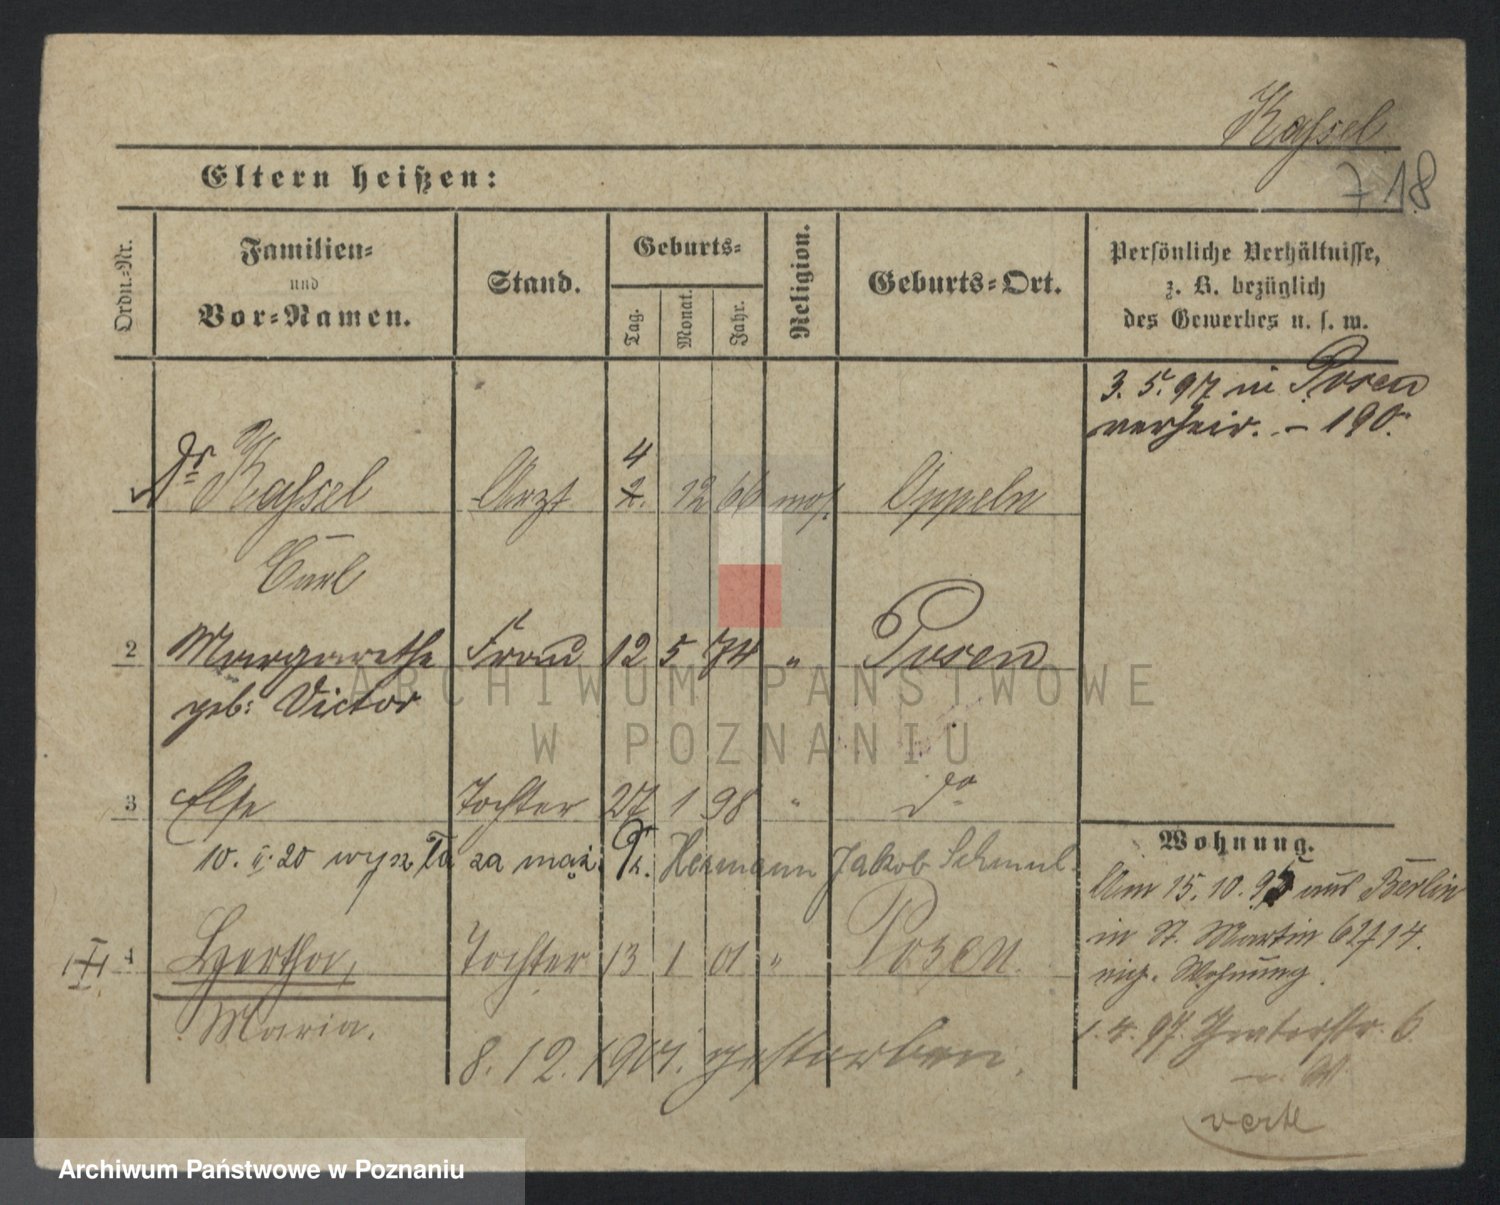 Kassel
718
Eltern heißen:
Ordn.-Nr.
Familien-
und
Vor-Namen.
Stand.
Geburts-
Tag.
Monat.
Jahr.
Religion.
Geburts-Ort.
Persönliche Verhältnisse,
z. B. bezüglich
des Gewerbes u. s. w.
3. 5. 97 in Posen
verheir. – 190.
Dr Kassel Arzt 4 2. 12 66 mos. Oppeln
Carl
2 Margarethe Frau 12 5 74 " Posen
geb: Victor
3 Else Tochter 27 1 98 " do
10. II. 20 wysz. za maż. Hermann Jakob Schmul
4 Hertha, Tochter 13 1 01 " Posen.
Maria.
8. 12. 1901. gestorben.
Wohnung.
Am 15. 10. 95 aus Berlin
in St. Martin 62 714.
eig. Wohnung.
1. 4. 97. Theaterstr. 6.
verte
ARCHIWUM PAŃSTWOWE
W POZNANIU
Archiwum Państwowe w Poznaniu